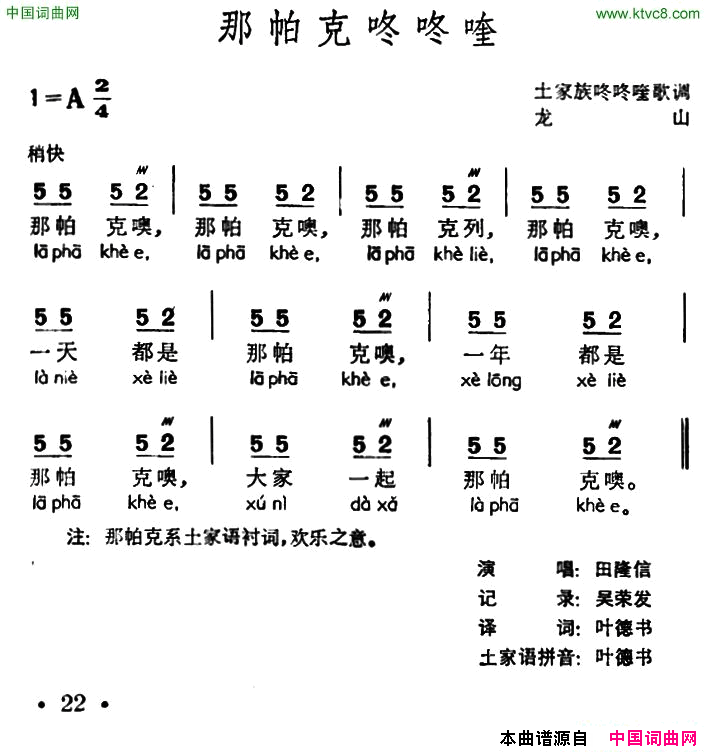 中国词曲网
www.ktvc8.com
那帕克咚咚喹
1=A 2/4
土家族咚咚喹歌调
龙山
稍快
5 5 5 2 | 5 5 5 2 | 5 5 5 2 | 5 5 5 2 |
那帕 克噢, 那帕 克噢, 那帕 克列, 那帕 克噢,
lāphā khè e, lāphā khè e, lāphā khè liè, lāphā khè e,
5 5 5 2 | 5 5 5 2 | 5 5 5 2 |
一天 都是 那帕 克噢, 一年 都是
là niè xè liè lāphā khè e, xè lōng xè liè
5 5 5 2 | 5 5 5 2 | 5 5 5 2 ‖
那帕 克噢, 大家 一起 那帕 克噢。
lāphā khè e, xú nì dà xǎ làphā khè e。
注: 那帕克系土家语衬词,欢乐之意。
演唱: 田隆信
记录: 吴荣发
译词: 叶德书
土家语拼音: 叶德书
• 22 •
本曲谱源自 中国词曲网